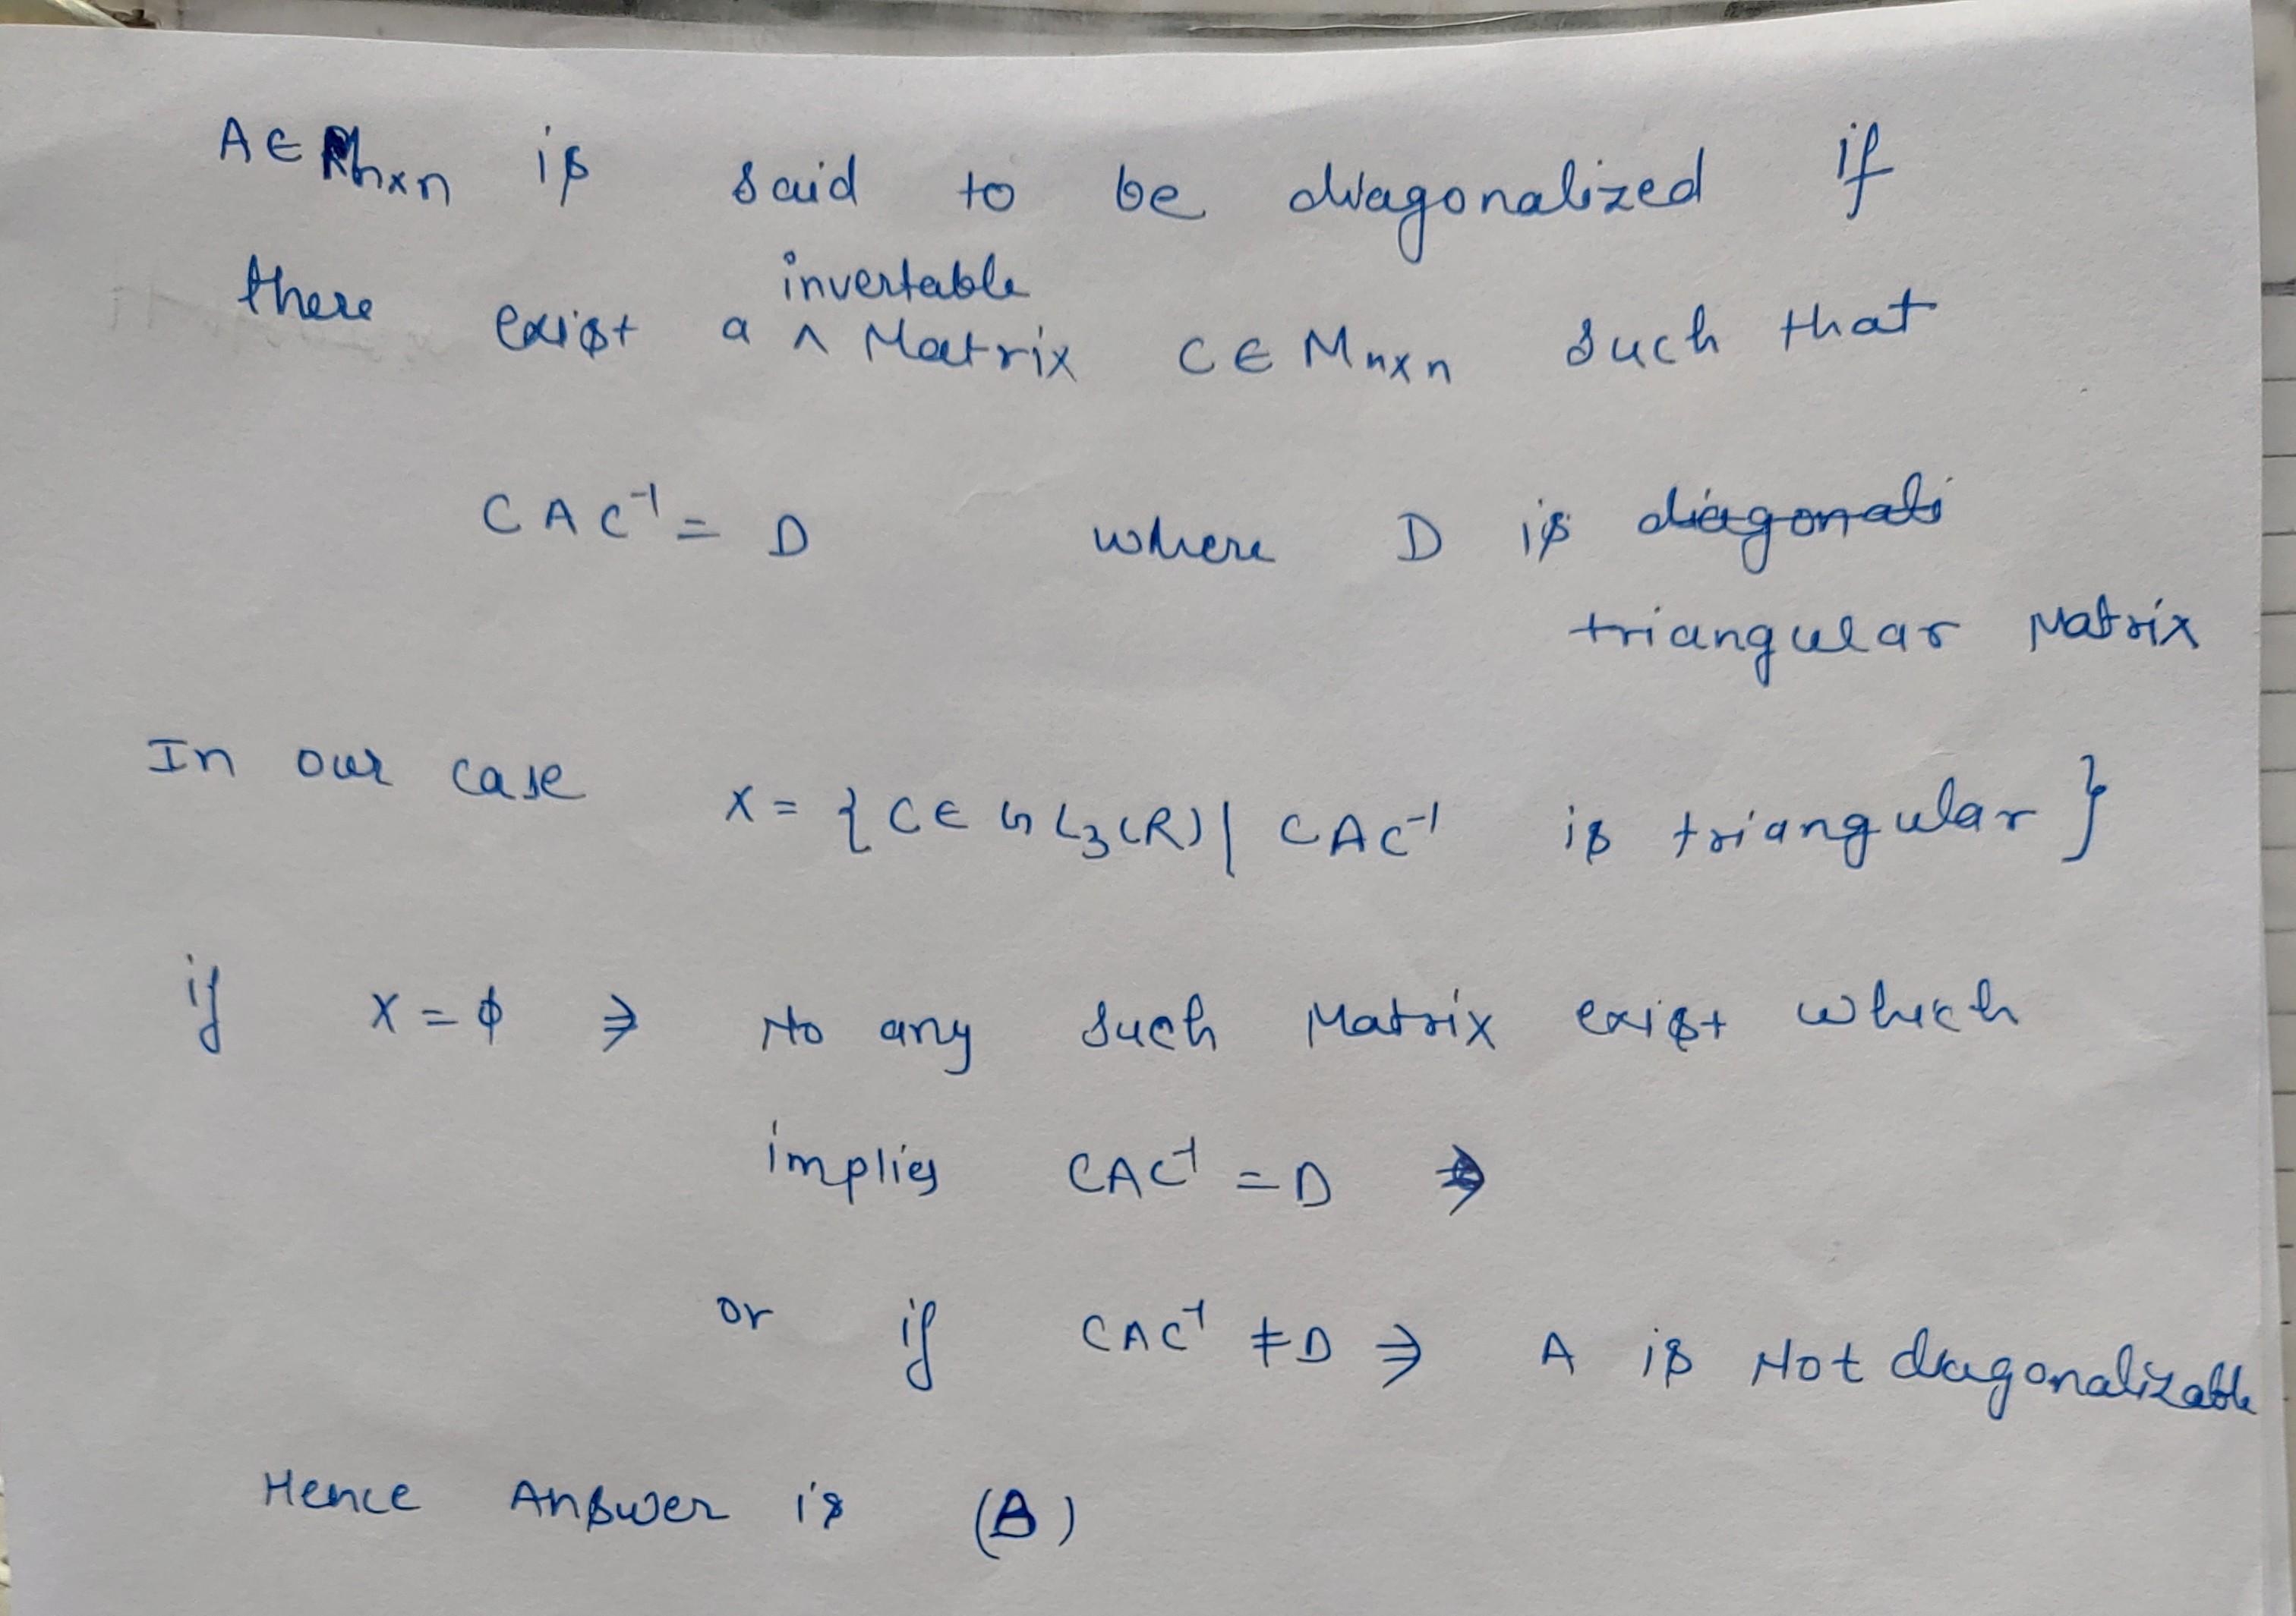 A ∈ Mn×n is said to be diagonalized if
there exist a ^ invertable Matrix C ∈ Mn×n such that
CAC⁻¹ = D where D is ~~diagonali~~
triangular Matrix
In our case X = { C ∈ GL₃(R) | CAC⁻¹ is triangular }
if X = ϕ ⇒ No any such Matrix exist which
implies CAC⁻¹ = D ⇒
or if CAC⁻¹ ≠ D ⇒ A is Not diagonalizable
Hence Answer is (B)